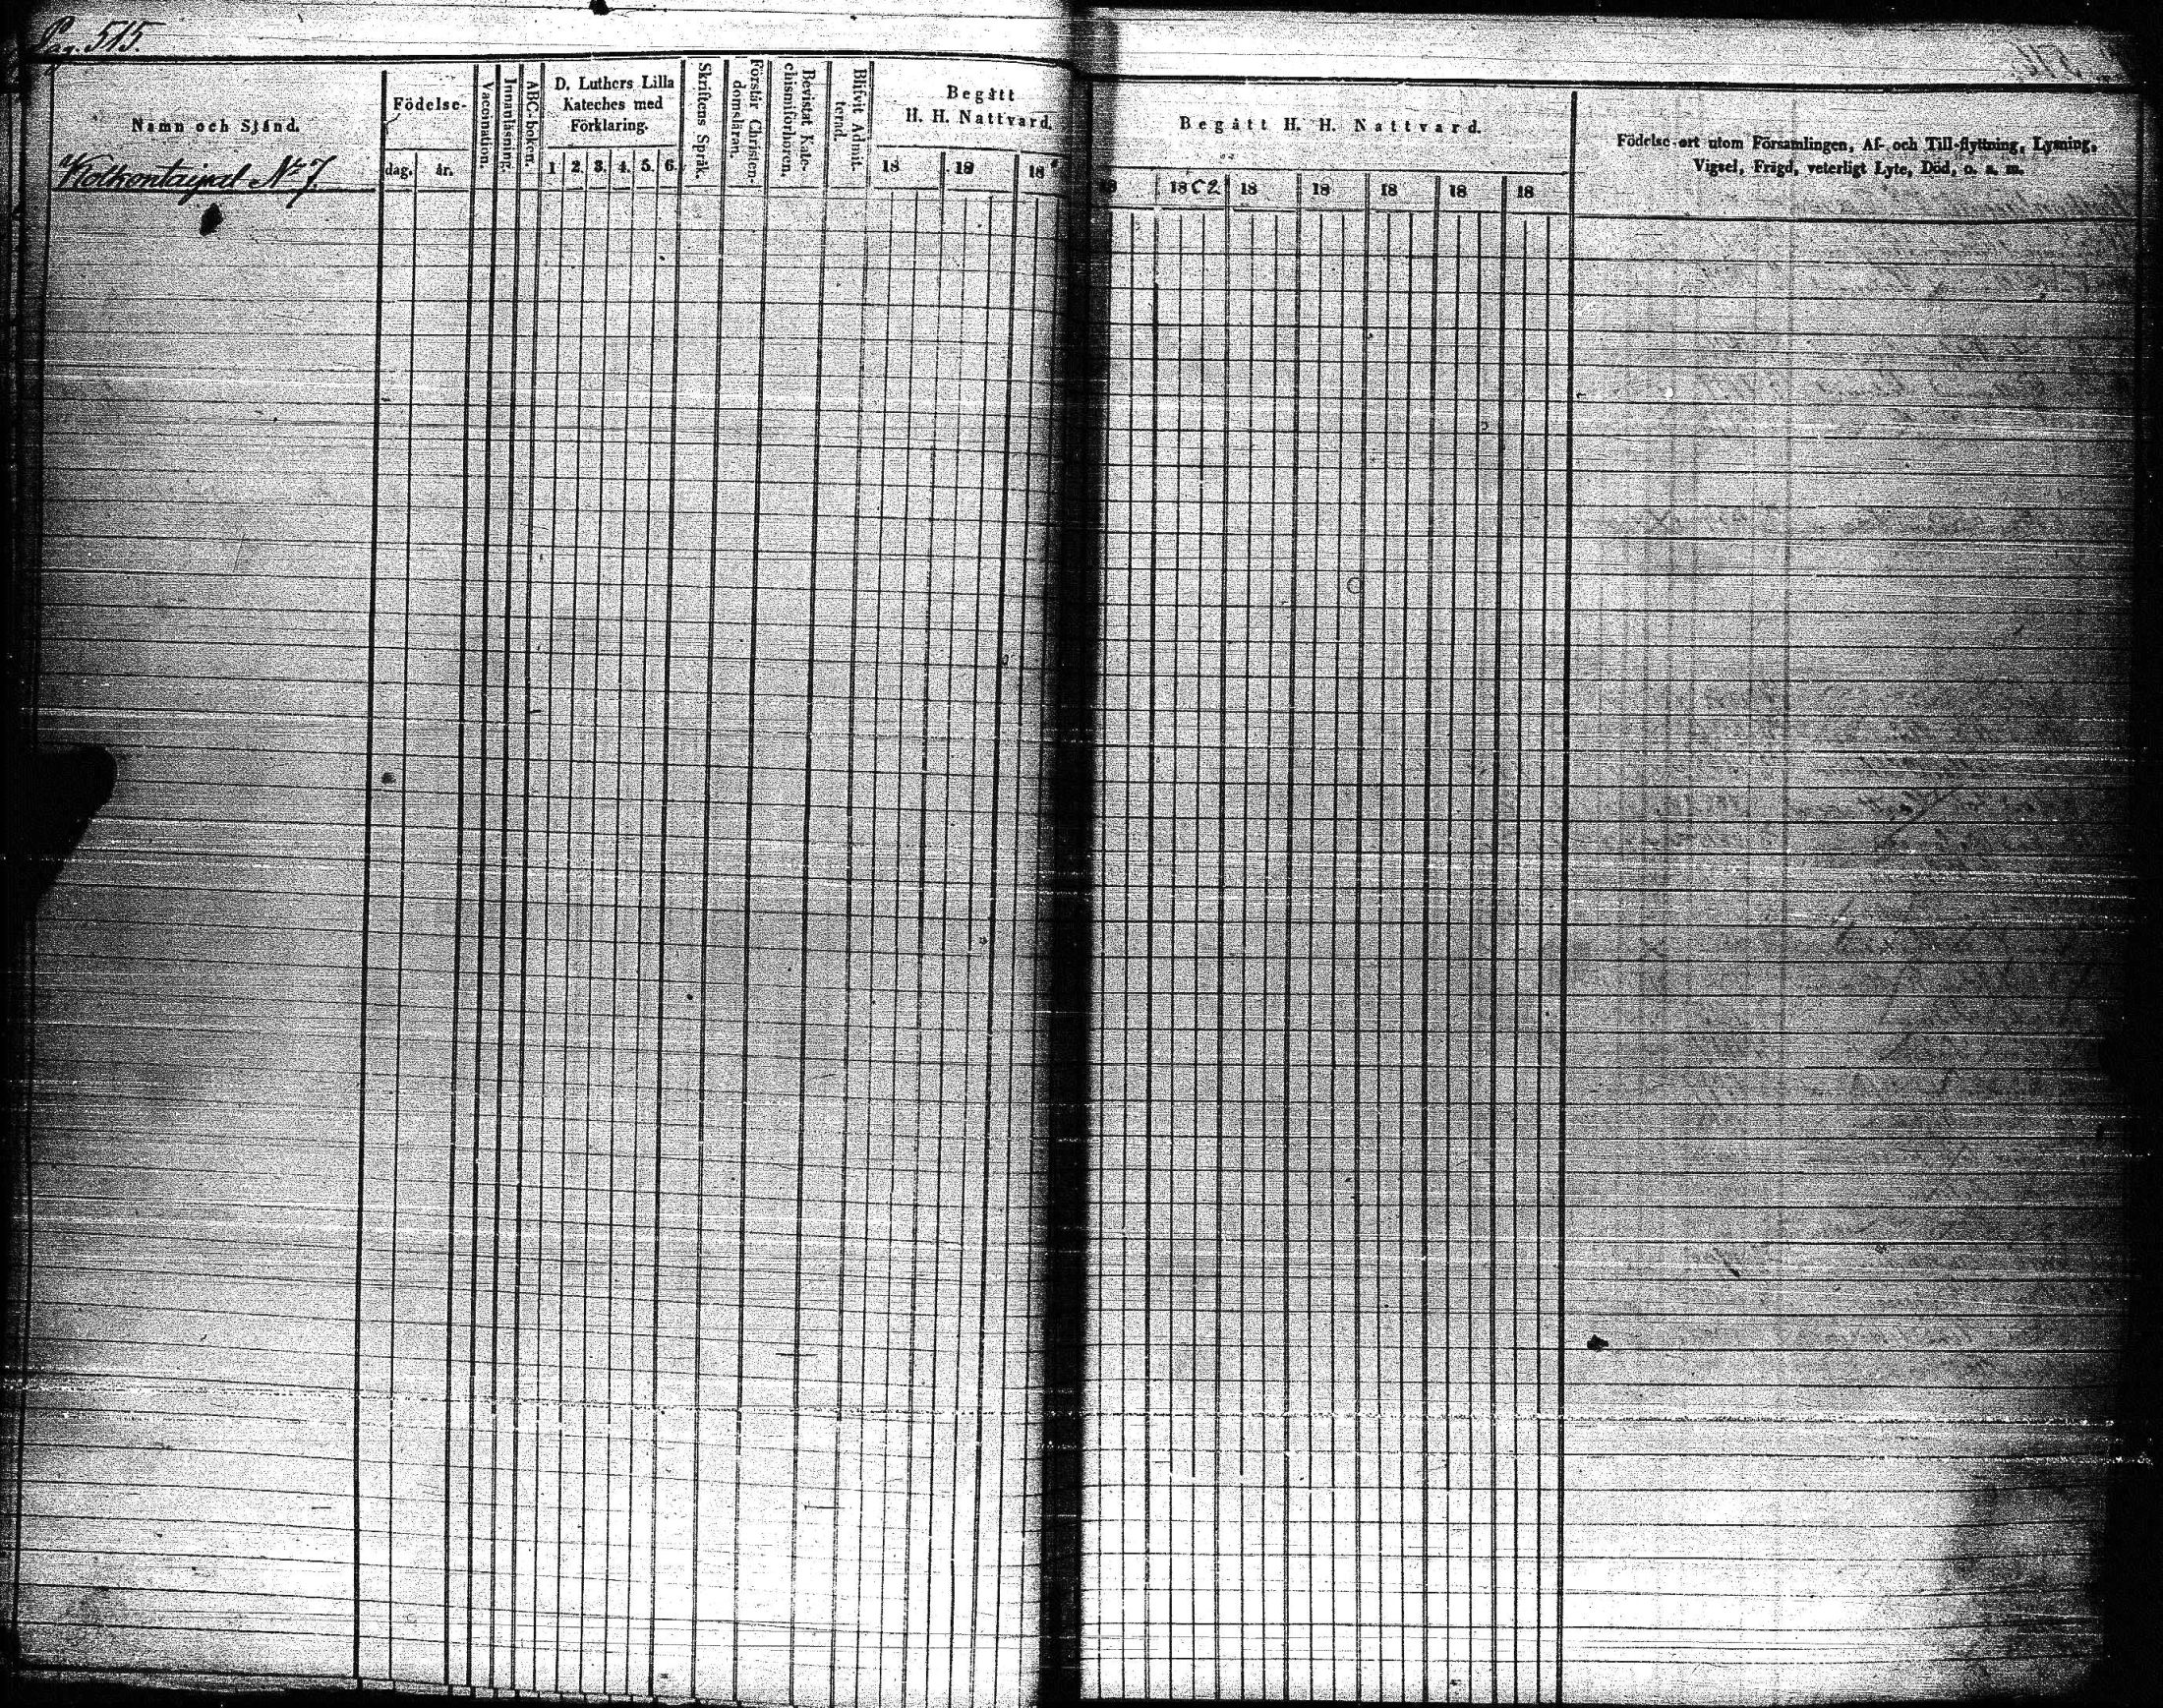 Pag. 515.
Namn och Stånd.
Födelse-
dag. år.
Vaccination.
Innanläsning.
ABC-boken.
D. Luthers Lilla
Kateches med
Förklaring.
1 2. 3. 4. 5. 6.
Skriftens Språk.
Förstår Christen-
domsläran.
Bevistat Kate-
chismiförhören.
Blifvit Admit-
terad.
Begått
H. H. Nattvard.
18 18 18
Begått H. H. Nattvard.
18 1862 18 18 18 18 18
Födelse-ort utom Församlingen, Af- och Till-flyttning, Lysning,
Vigsel, Frägd, veterligt Lyte, Död, o. s. m.
N:o 7.